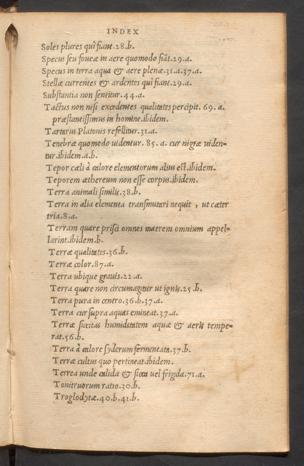 INDEX
Soles plures qui fiant.28.b.
Specus seu foueæ in aere quomodo fiāt.29.a.
Specus in terra aqua & aere plenæ.31.a.37.a.
Stellæ currentes & ardentes qui fiant.29.a.
Substantia non sentitur.44.a.
Tactus non nisi excedentes qualitates percipit. 69. a.
præstantissimus in homine.ibidem.
Tartarus Platonis refellitur.31.a.
Tenebræ quomodo uidentur. 85. a. cur nigræ uiden-
tur.ibidem.a.b.
Tepor cæli à calore elementorum alius est.ibidem.
Teporem æthereum non esse corpus.ibidem.
Terra animali similis.38.b.
Terra in alia elementa transmutari nequit , ut cæter
tria.8.a.
Terram quare prisci omnes matrem omnium appel-
larint.ibidem.b.
Terræ qualitates.36.b.
Terræ color.87.a.
Terra ubique grauis.22.a.
Terra quare non circumagitur ut ignis.25.b.
Terra pura in centro.36.b.37.a.
Terra cur supra aquas emineat.37.a.
Terræ siccitas humiditatem aquæ & aeris tempe-
rat.56.b.
Terra à calore syderum fermentata.37.b.
Terræ cultus quo pertineat.ibidem.
Terrea unde calida & sicca uel frigida.71.a.
Tonitruorum ratio.30.b.
Troglodytæ.40.b.41.b.